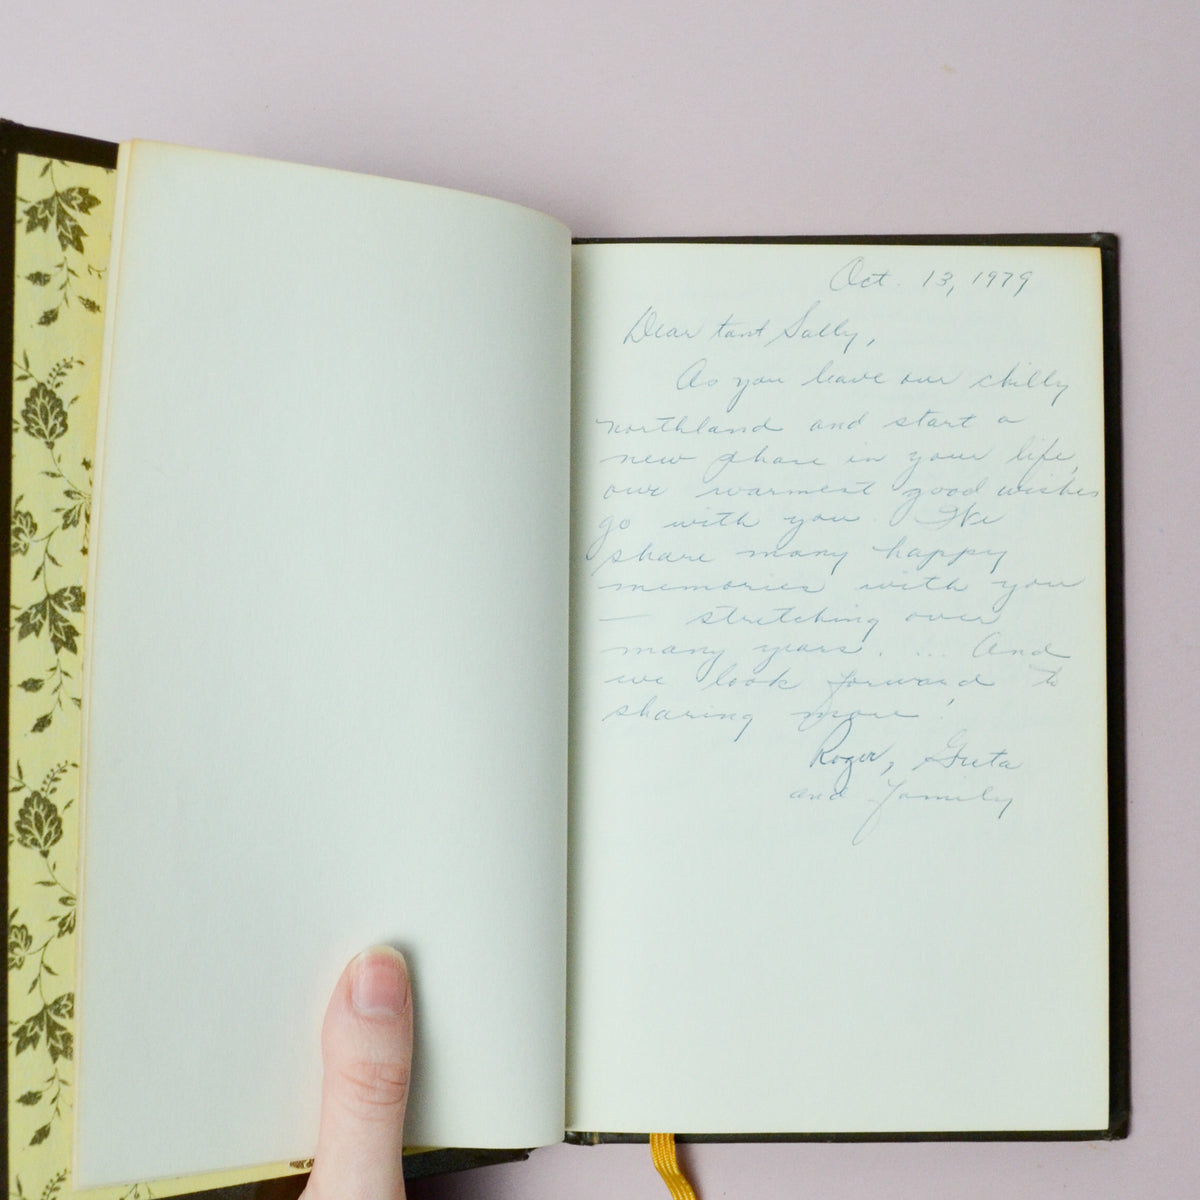 Oct. 13, 1979
Dear tant Sally,
As you leave our chilly
northland and start a
new phase in your life,
our warmest good wishes
go with you. We
share many happy
memories with you
— stretching over
many years. ... And
we look forward to
sharing more!
Roger, Greta
and family